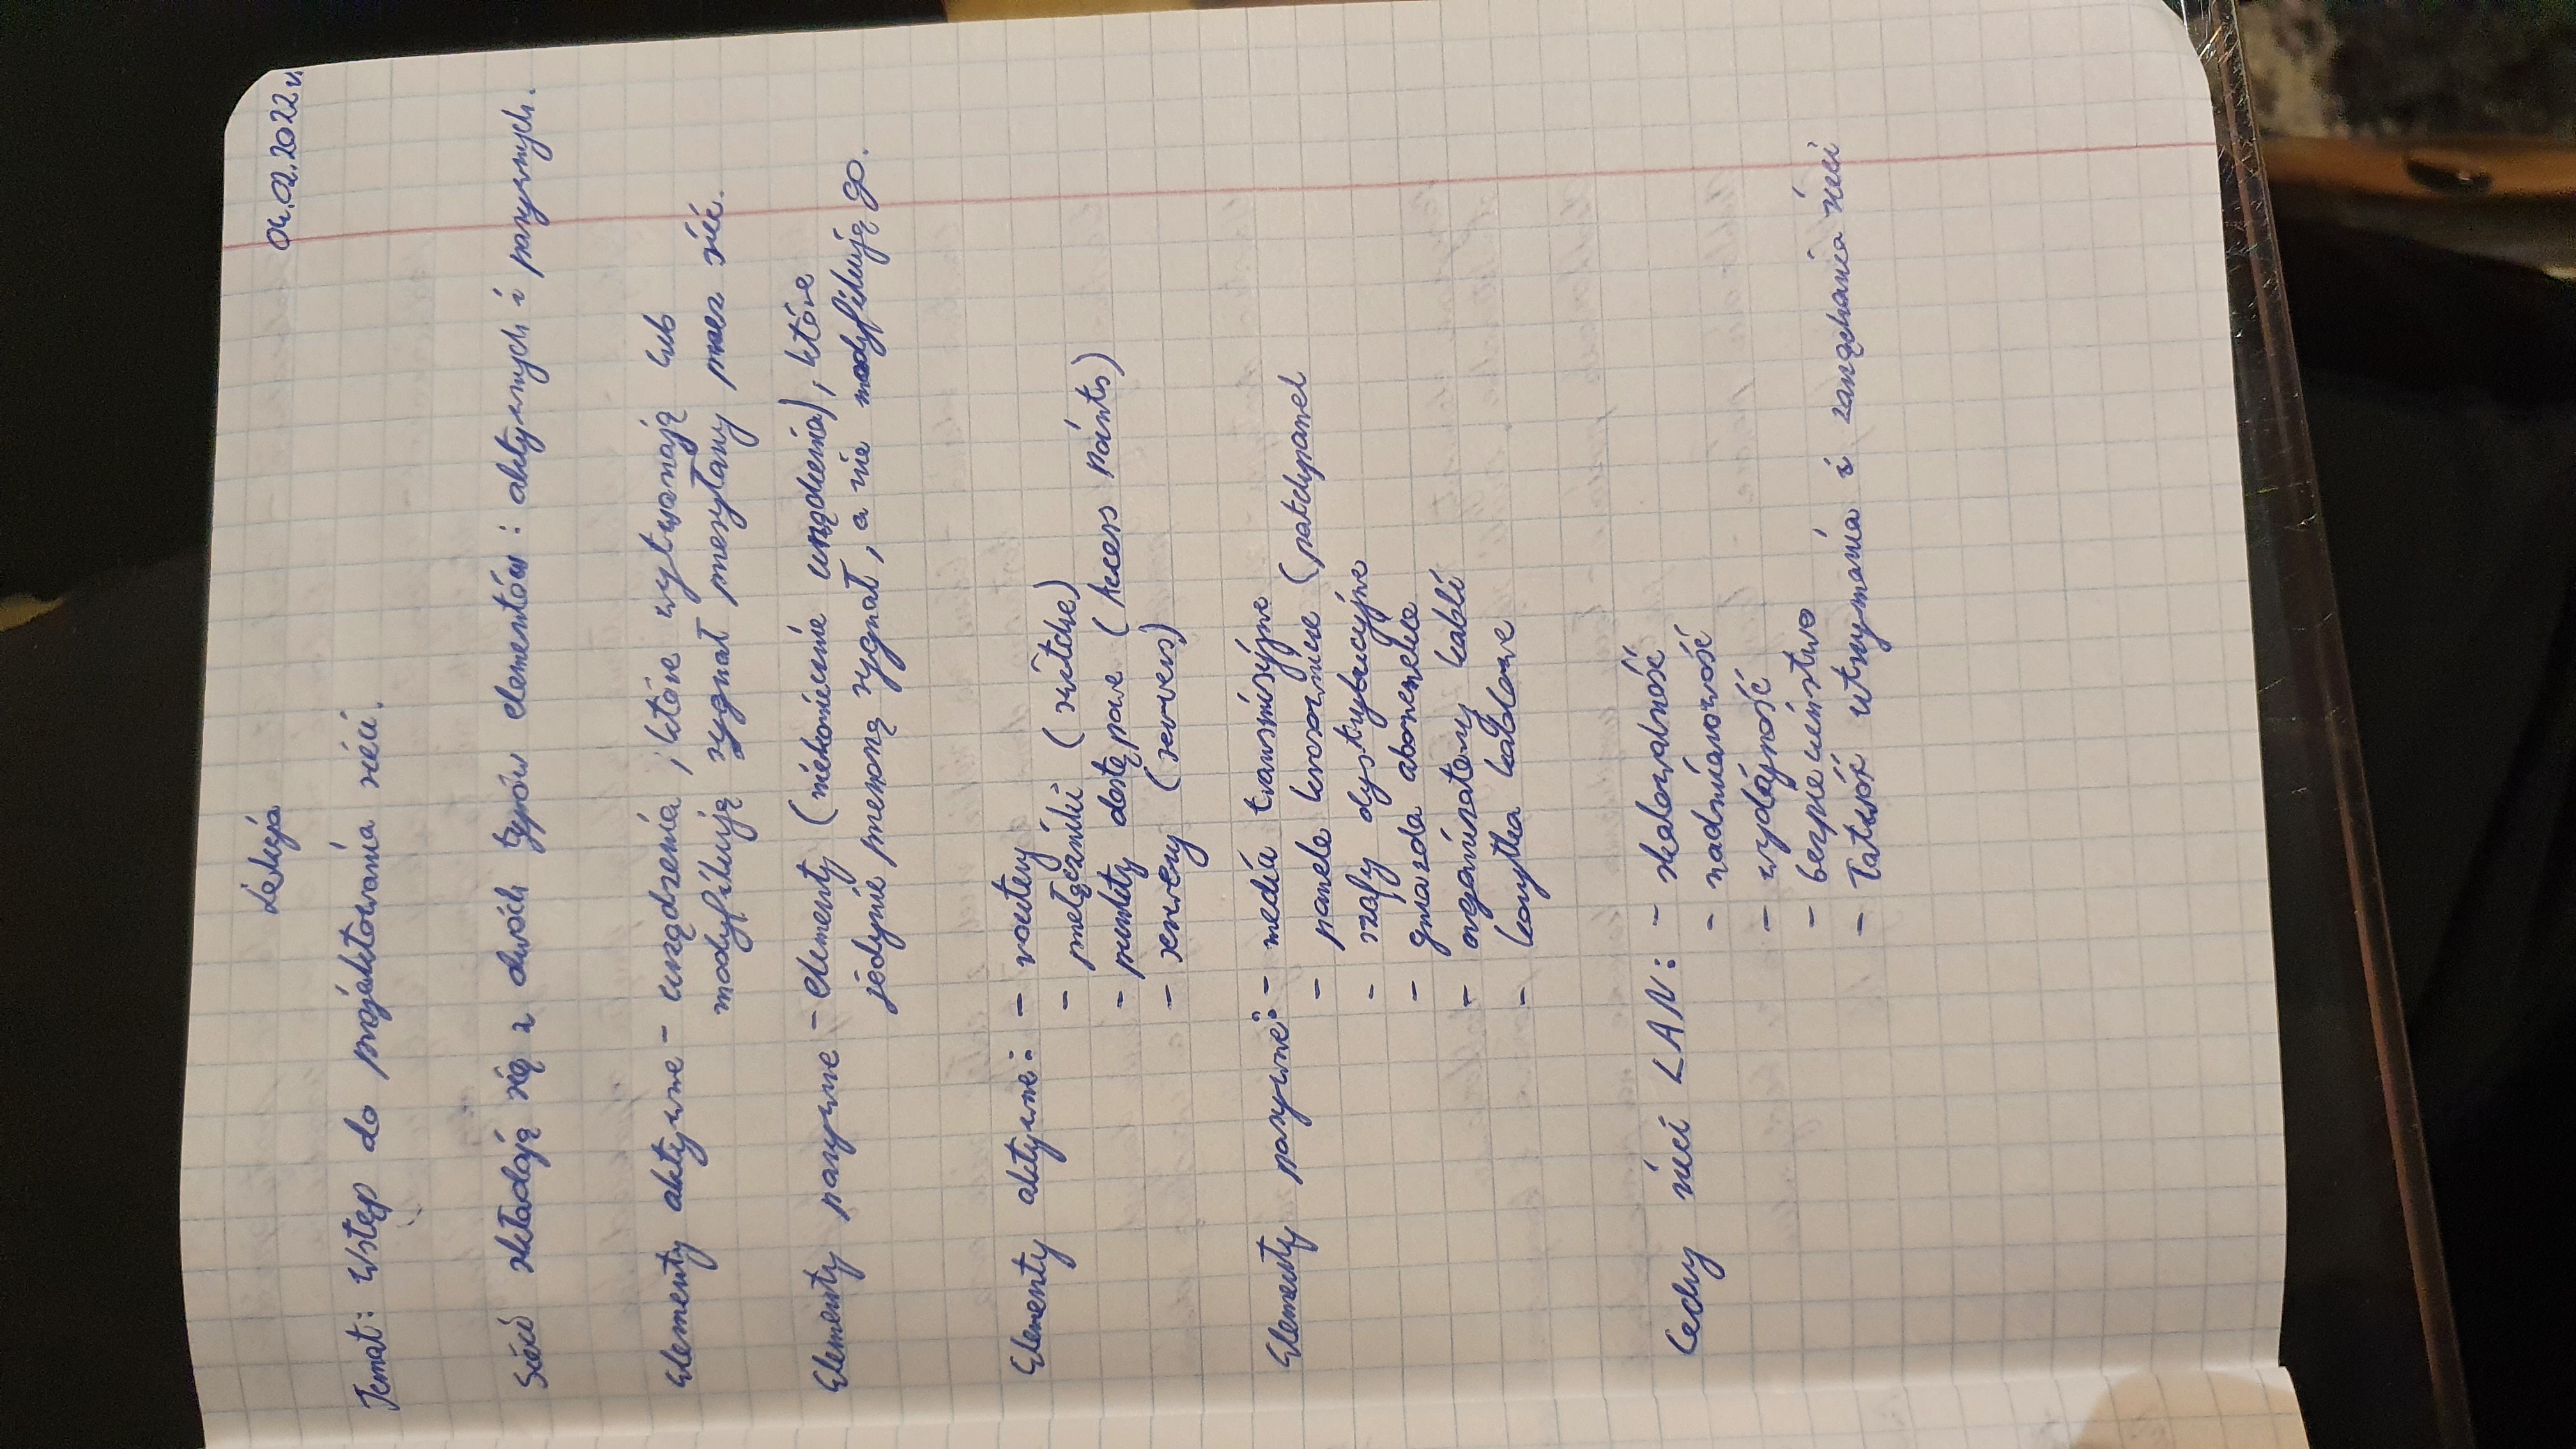 Lekcja
04.02.2022r.
Temat: Wstęp do projektowania sieci.
Sieci składają się z dwóch typów elementów: aktywnych i pasywnych.
Elementy aktywne - urządzenia, które wytwarzają lub
modyfikują sygnał przesyłany przez sieć.
Elementy pasywne - elementy (niekoniecznie urządzenia), które
jedynie przenoszą sygnał, a nie modyfikują go.
Elementy aktywne: - routery
- przełączniki (switche)
- punkty dostępowe (Access Points)
- serwery (servers)
Elementy pasywne: - media transmisyjne
- panele krosownicze (patchpanel
- szafy dystrybucyjne
- gniazda abonenckie
- organizatory kabli
- korytka kablowe
Cechy sieci LAN: - skalowalność
- nadmiarowość
- wydajność
- bezpieczeństwo
- łatwość utrzymania i zarządzania sieci